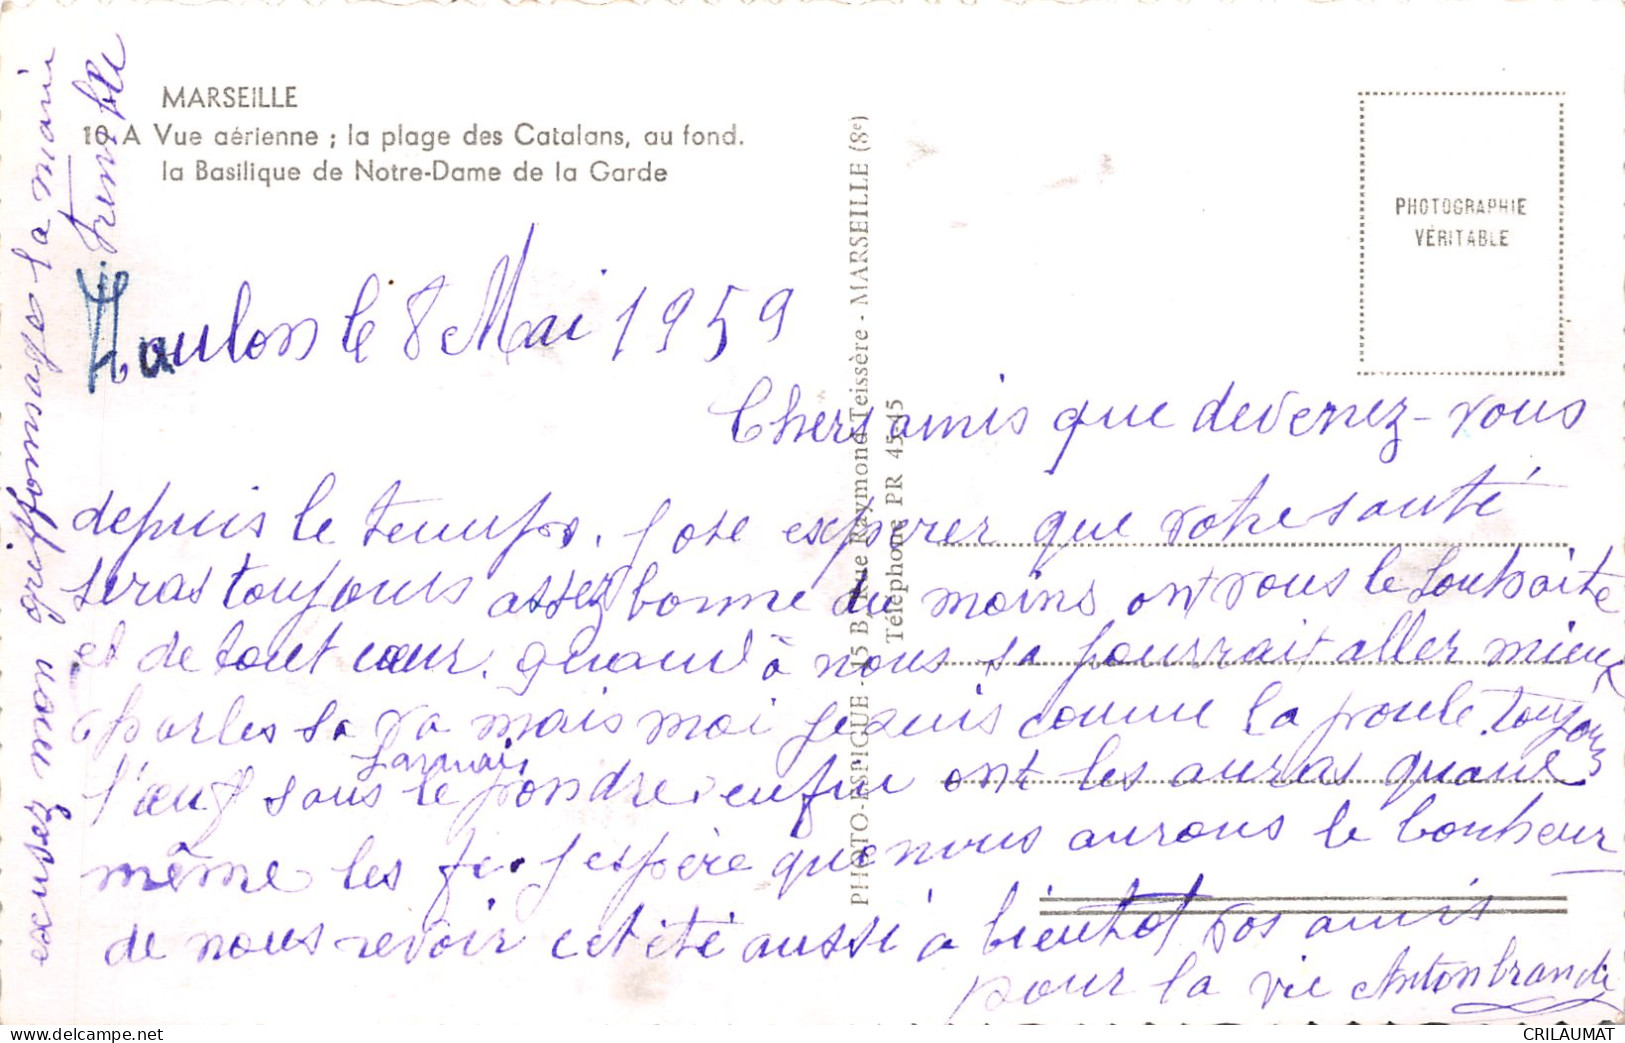 MARSEILLE
10 A Vue aérienne ; la plage des Catalans, au fond.
la Basilique de Notre-Dame de la Garde
PHOTOGRAPHIE
VÉRITABLE
PHOTO-ESPIGUE - 45 B, Rue Raymond Teissère - MARSEILLE (8e)
Téléphone PR 45-15
Toulon le 8 Mai 1959
Chers amis que devenez-vous
depuis le temps. J ose espérer que votre santé
seras toujours assez bonne du moins ont vous le souhaite
et de tout cœur. quand à nous sa pourrait aller mieux
parles sa va mais moi je suis comme la poule toujours
l'œuf sans jamais le pondre. enfin ont les auras quand
même les fe. J espère que nous aurons le bonheur
de nous revoir cet été aussi a bientot vos amis
pour la vie Antonbrandi
excusez mon griffonnages la main
tremble
delcampe.net
CRILAUMAT